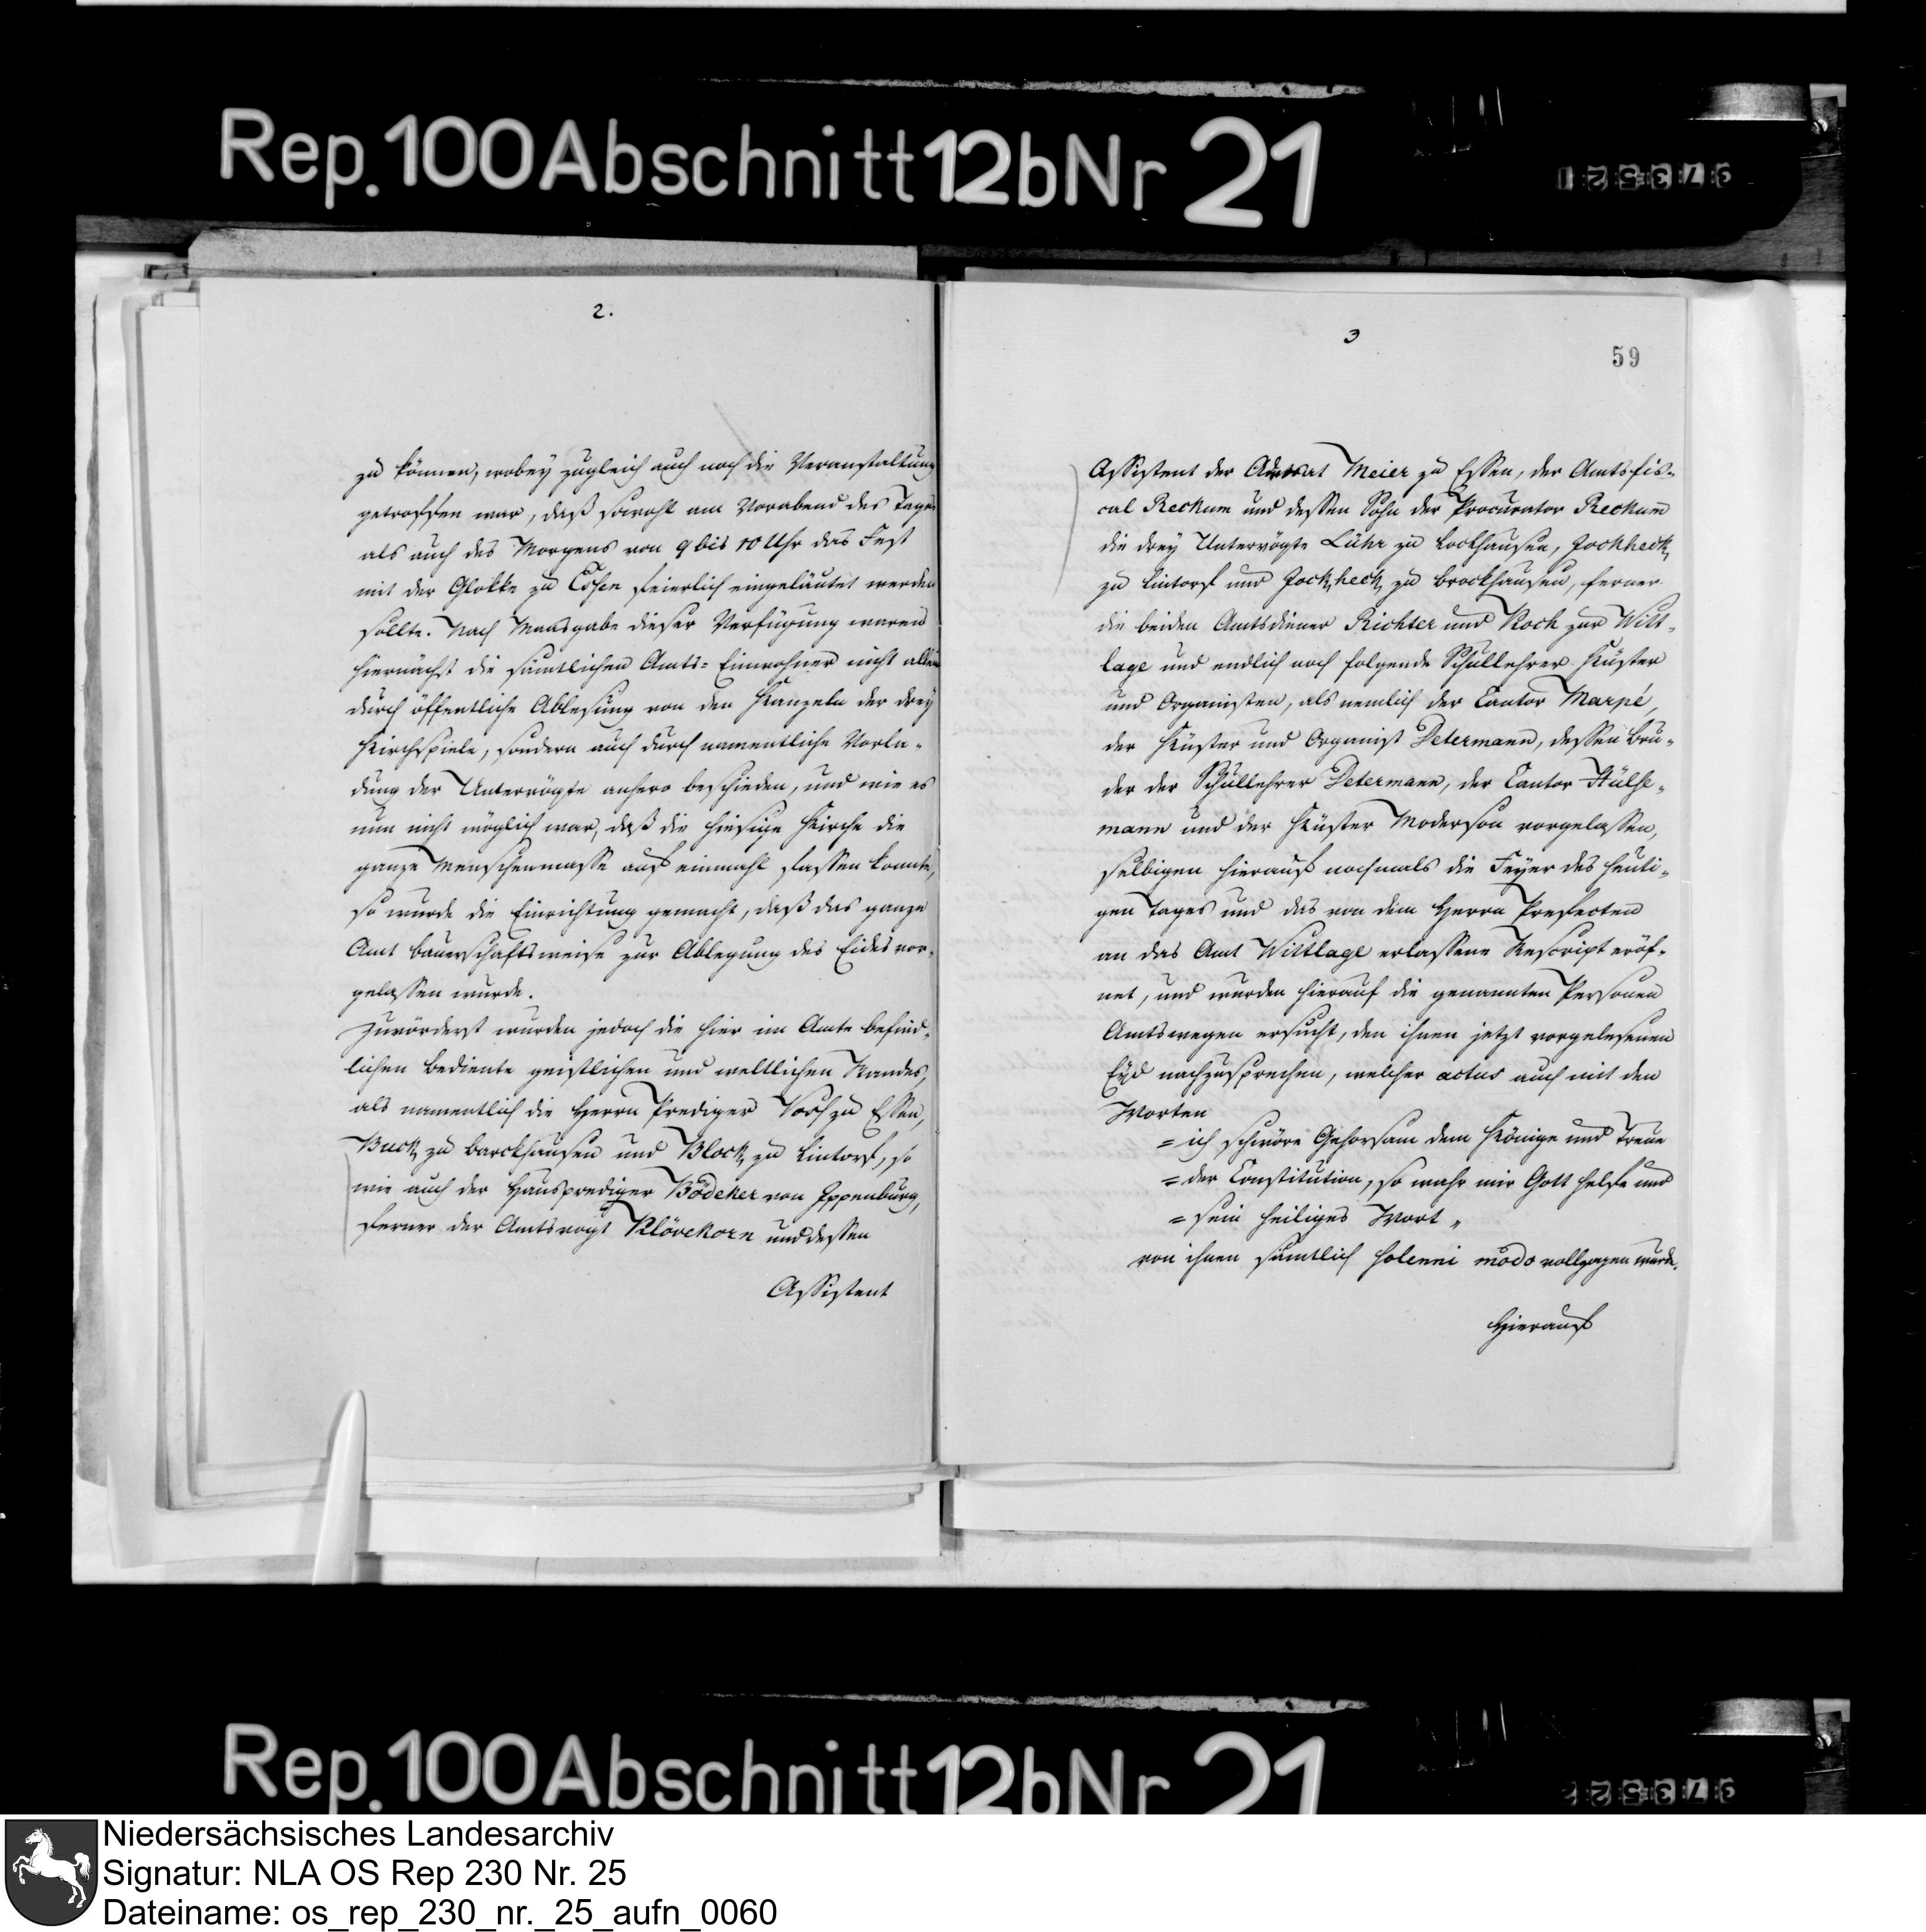 Rep. 100 Abschnitt 12b Nr 21
97352 1
2.
zu können, wobey zugleich auch noch die Veranstaltung
getroffen war, daß sowohl am Vorabend des Tages
als auch des Morgens von 9 bis 10 Uhr das Fest
mit der Glokke zu Essen feierlich eingeläutet werden
sollte. Nach Maasgabe dieser Verfügung waren
hiernächst die sämtlichen Amts=Einwohner nicht allein
durch öffentliche Ablesung von den Kanzeln der drey
Kirchspiele, sondern auch durch namentliche Vorla-
dung der Untervögte anhero beschieden, und wie es
nun nicht möglich war, daß die hiesige Kirche die
ganze Menschenmasse auf einmahl fassen konnte,
so wurde die Einrichtung gemacht, daß das ganze
Amt bauerschaftsweise zur Ablegung des Eides vor-
gelassen wurde.
Zuvörderst wurden jedoch die hier im Amte befind-
lichen Bediente geistlichen und weltlichen Standes,
als namentlich die Herrn Prediger zu Essen,
Buck zu Barckhausen und Block zu Lintorf, so
wie auch der Hausprediger Bödeker von Ippenburg,
ferner der Amtsvogt Klövekorn und dessen
Assistent
3
59
Assistent der Advocat Meier zu Essen, der Amtsfis-
cal Reckum und dessen Sohn der Procurator Reckum
die drey Untervögte Lühr zu Lockhausen, Jockheck
zu Lintorf und Jockheck zu Brockhausen, ferner
die beiden Amtsdiener Richter und Koch zur Witt-
lage und endlich noch folgende Schullehrer Küster
und Organisten, als nemlich der Cantor Marpé,
der Küster und Organist Determann, dessen Bru-
der der Schullehrer Determann, der Cantor Hülse-
mann und der Küster Moderson vorgelassen,
selbigen hierauf nochmals die Feyer des heuti-
gen Tages und das von dem Herrn Prefecten
an das Amt Wittlage erlassene Rescript eröf-
net, und wurden hierauf die genannten Personen
Amtswegen ersucht, den ihnen jetzt vorgelesenen
Eyd nachzusprechen, welcher actus auch mit den
Worten
= ich schwöre Gehorsam dem Könige und Treue
= der Constitution, so wahr mir Gott helfe und
= sein heiliges Wort „
von ihnen sämtlich solenni modo vollzogen wurde.
Hierauf
Rep. 100 Abschnitt 12b Nr 21
97352 2
Niedersächsisches Landesarchiv
Signatur: NLA OS Rep 230 Nr. 25
Dateiname: os_rep_230_nr._25_aufn_0060